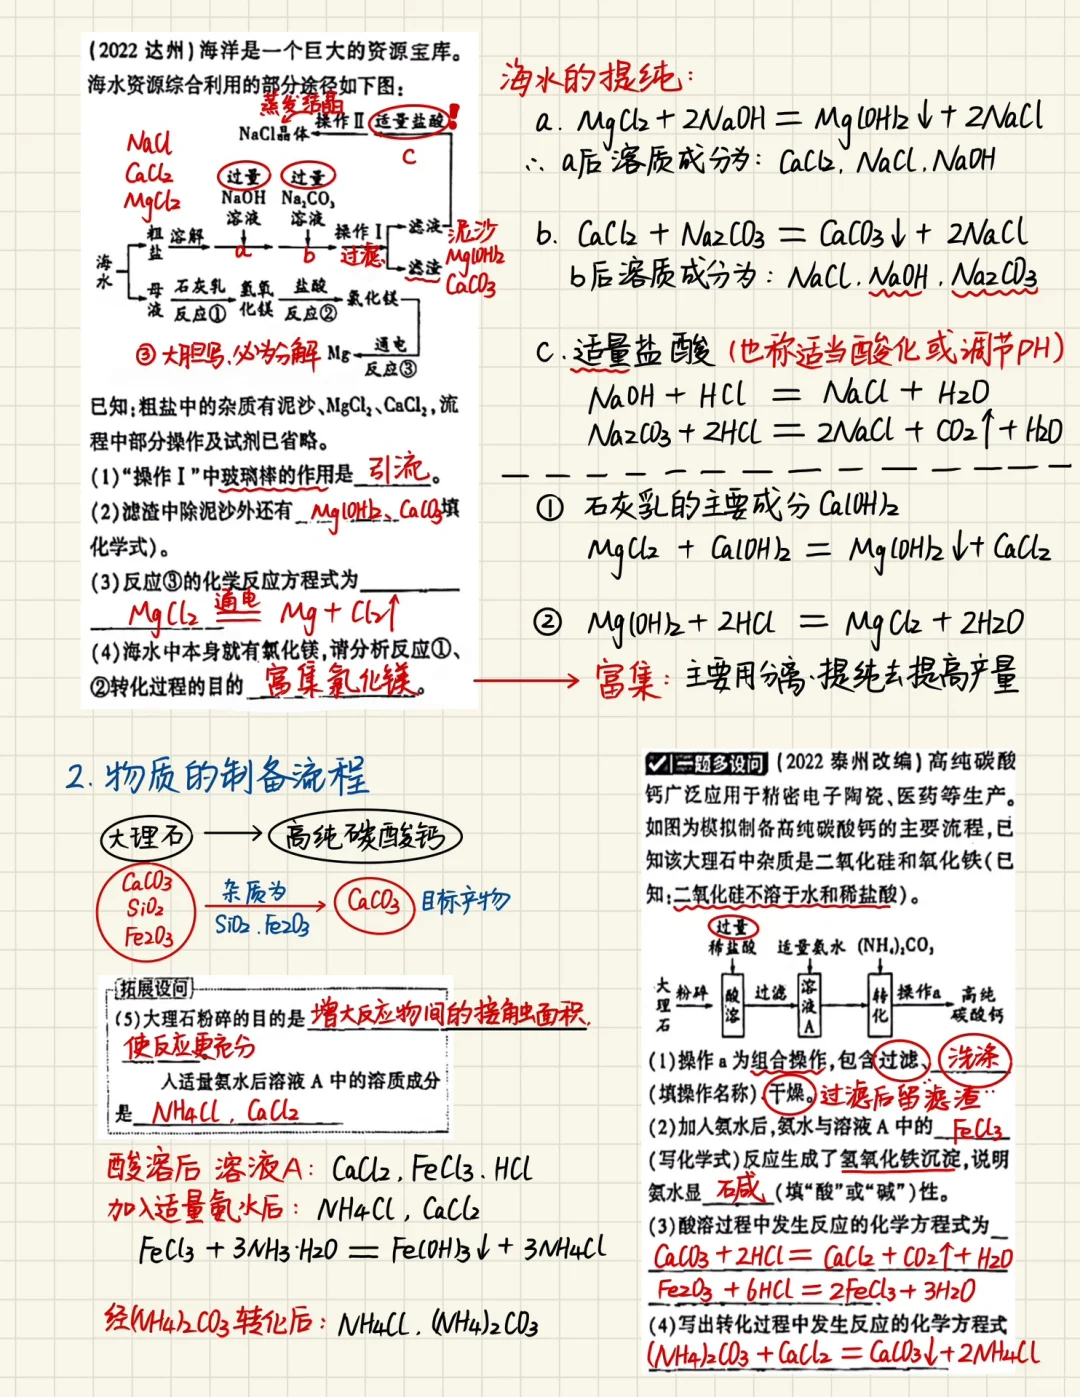 (2022 达州)海洋是一个巨大的资源宝库。
海水资源综合利用的部分途径如下图:
蒸发结晶
NaCl晶体 操作Ⅱ 适量盐酸 !
c
NaCl
CaCl2
MgCl2
过量 过量
NaOH Na₂CO₃
溶液 溶液
粗盐 溶解 a b 操作Ⅰ 过滤 滤液
滤渣
泥沙
Mg(OH)2
CaCO3
海水
母液 石灰乳 反应① 氢氧化镁 盐酸 反应② 氯化镁
③ 大胆写,必为分解 Mg 通电
反应③
已知:粗盐中的杂质有泥沙、MgCl₂、CaCl₂,流
程中部分操作及试剂已省略。
(1)“操作Ⅰ”中玻璃棒的作用是 引流 。
(2)滤渣中除泥沙外还有 Mg(OH)2、CaCO3 填
化学式)。
(3)反应③的化学反应方程式为
MgCl2 通电 == Mg + Cl2↑
(4)海水中本身就有氯化镁,请分析反应①、
②转化过程的目的 富集氯化镁 。
海水的提纯:
a. MgCl2 + 2NaOH = Mg(OH)2↓ + 2NaCl
∴ a后溶质成分为: CaCl2, NaCl, NaOH
b. CaCl2 + Na2CO3 = CaCO3↓ + 2NaCl
b后溶质成分为: NaCl, NaOH, Na2CO3
c. 适量盐酸 (也称适当酸化或调节PH)
NaOH + HCl = NaCl + H2O
Na2CO3 + 2HCl = 2NaCl + CO2↑ + H2O
① 石灰乳的主要成分Ca(OH)2
MgCl2 + Ca(OH)2 = Mg(OH)2↓ + CaCl2
② Mg(OH)2 + 2HCl = MgCl2 + 2H2O
富集: 主要用分离、提纯去提高产量
2. 物质的制备流程
大理石 → 高纯碳酸钙
CaCO3
SiO2
Fe2O3
杂质为
SiO2、Fe2O3
CaCO3 目标产物
拓展设问
(5)大理石粉碎的目的是 增大反应物间的接触面积,
使反应更充分
入适量氨水后溶液 A 中的溶质成分
是 NH4Cl, CaCl2
酸溶后 溶液A: CaCl2, FeCl3、HCl
加入适量氨水后: NH4Cl, CaCl2
FeCl3 + 3NH3·H2O = Fe(OH)3↓ + 3NH4Cl
经(NH4)2CO3转化后: NH4Cl、(NH4)2CO3
一题多设问 (2022 泰州改编)高纯碳酸
钙广泛应用于精密电子陶瓷、医药等生产。
如图为模拟制备高纯碳酸钙的主要流程,已
知该大理石中杂质是二氧化硅和氧化铁(已
知:二氧化硅不溶于水和稀盐酸)。
过量
稀盐酸 适量氨水 (NH₄)₂CO₃
大理石 粉碎 酸溶 过滤 溶液A 转化 操作a 高纯
碳酸钙
(1)操作 a 为组合操作,包含过滤、 洗涤
(填操作名称)、干燥。 过滤后留滤渣
(2)加入氨水后,氨水与溶液 A 中的 FeCl3
(写化学式)反应生成了氢氧化铁沉淀,说明
氨水显 碱 (填“酸”或“碱”)性。
(3)酸溶过程中发生反应的化学方程式为
CaCO3 + 2HCl = CaCl2 + CO2↑ + H2O
Fe2O3 + 6HCl = 2FeCl3 + 3H2O
(4)写出转化过程中发生反应的化学方程式
(NH4)2CO3 + CaCl2 = CaCO3↓ + 2NH4Cl